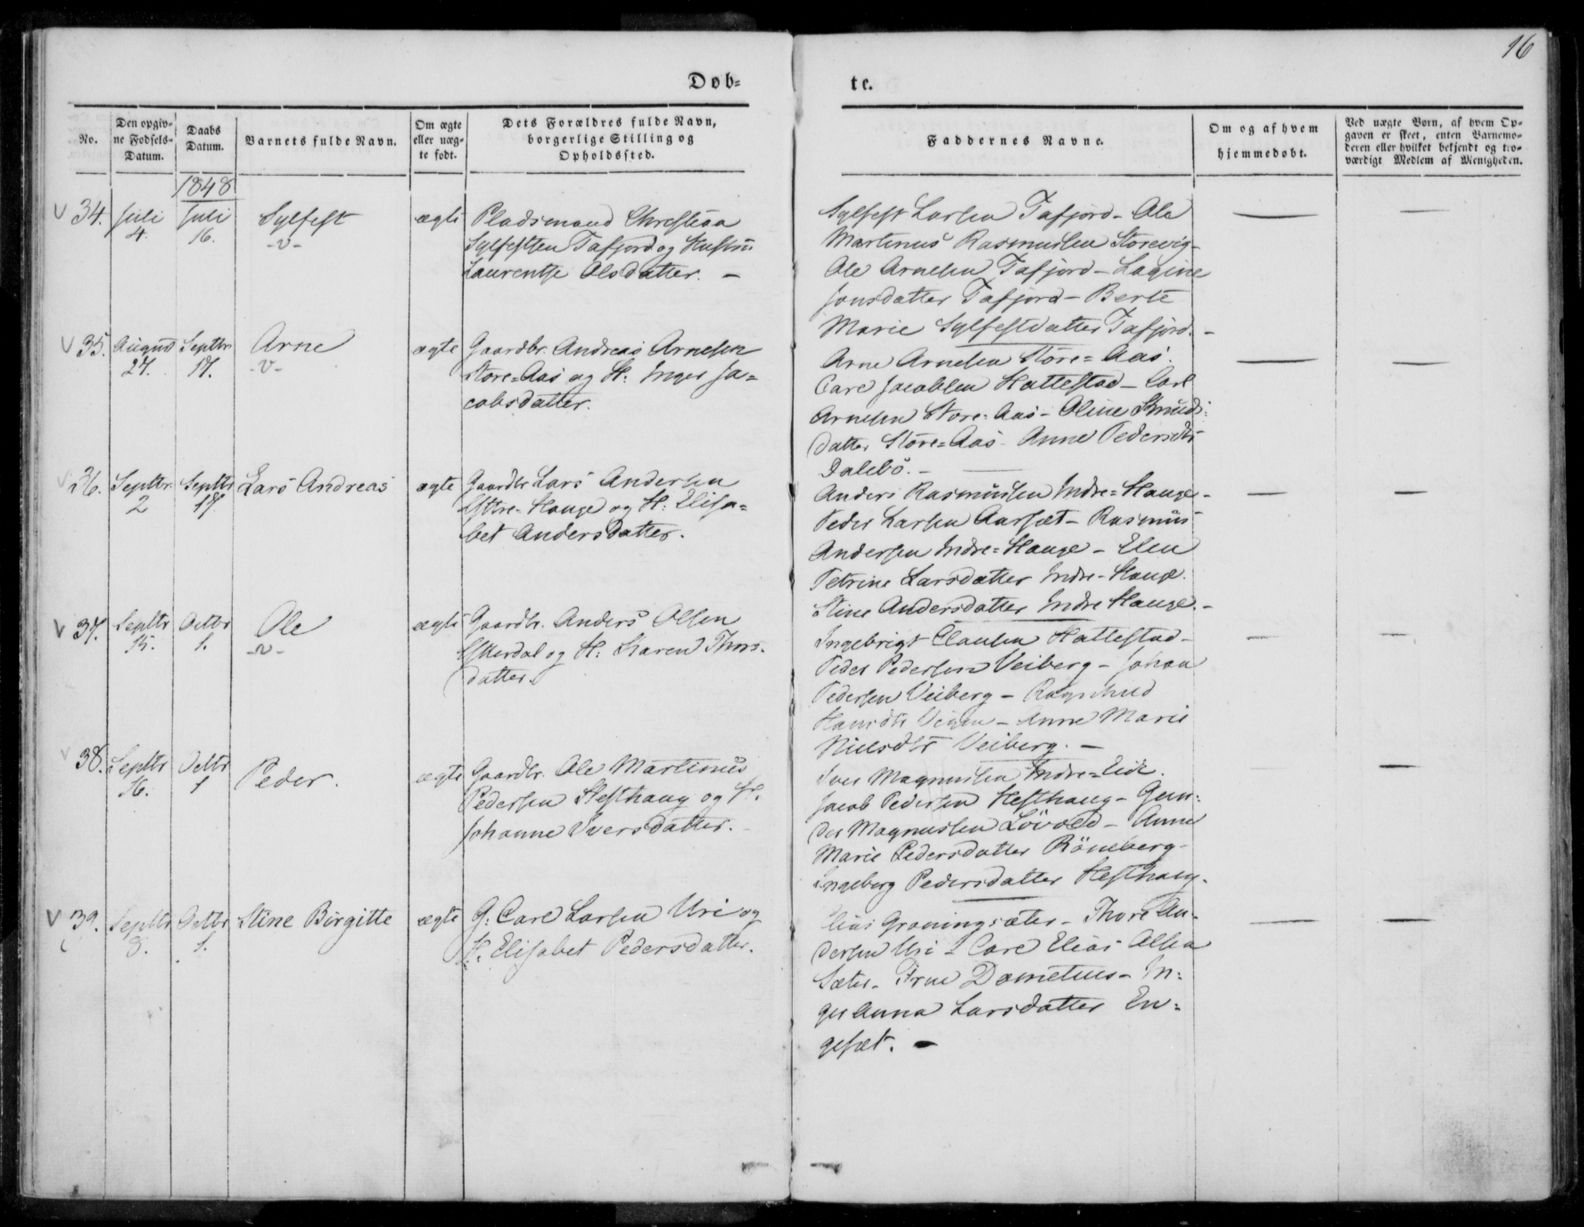 16
Døb=
te.
No.
Den opgiv-
ne Fødsels-
Datum.
Daabs
Datum.
Barnets fulde Navn.
Om ægte
eller uæg-
te født.
Dets Forældres fulde Navn,
borgerlige Stilling og
Opholdssted.
Faddernes Navne.
Om og af hvem
hjemmedøbt.
Ved uægte Børn, af hvem Op-
gaven er skeet, enten Barnemo-
deren eller hvilket bekjendt og tro-
værdigt Medlem af Menigheden.
1848
34.
Juli
4.
Juli
16.
Sylfest
-v-
ægte
Pladsmand Christian
Sylfestsen Tafjord og Hustru
Laurentse Olsdatter. -
Sylfest Larsen Tafjord - Ole
Martinus Rasmussen Storevig -
Ole Arnesen Tafjord - Lagine
Jonsdatter Tafjord - Berte
Marie Sylfestdatter Tafjord. -
35.
August
27.
Septbr
17.
Arne
-v-
ægte
Gaardbr. Andreas Arnesen
Store=Aas og H: Inger Ja=
cobsdatter.
Arne Arnesen Store=Aas.
Carl Jacobsen Hattestad - Carl
Arnesen Store=Aas - Oline Knuds=
datter Store=Aas - Anne Pedersdtr
Dalebø. -
36.
Septbr.
2
Septbr
17
Lars Andreas
ægte
Gaardbr Lars Andersen
Yttre-Hauge og H: Elisa=
bet Andersdatter.
Anders Rasmussen Indre=Hauge -
Peder Larsen Aarset - Rasmus
Andersen Indre=Hauge - Elen
Petrine Larsdatter Indre-Hauge.
Stine Andersdatter Indre Hauge. -
37.
Septbr
15.
Octbr
1.
Ole
-v-
ægte
Gaardbr. Anders Olsen
Ytterdal og H: Karen Thors-
datter.
Ingebrigt Clausen Hattestad -
Peder Pedersen Veiberg - Johan
Pedersen Veiberg - Ragnhild
Hansdtr - Anne Marie
Nielsdtr Veiberg. -
38.
Septbr
16.
Octbr
1
Peder.
ægte
Gaardbr. Ole Martinus
Pedersen Hesthaug og H.
Johanne Iversdatter.
Iver Magnussen Indre=Eide.
Jacob Pedersen Hesthaug - Gun=
der Magnussen Løvold - Anne
Marie Pedersdatter Røneberg -
Ingeborg Pedersdatter Hesthaug.
39.
Septbr
8.
Octbr
1.
Stine Birgitte
ægte
G: Carl Larsen Uri og
H. Elisabet Pedersdatter.
Elias Grøningsæter - Thore An-
dersen Uri - Carl Elias Olsen
Sæter - Frue Dometius - In=
ger Anna Larsdatter En=
geset. -